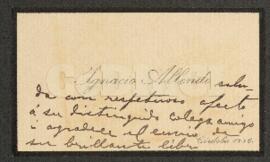 Ignacio Allende salu-
da con respetuoso afecto
á su distinguido colega amigo
i agradece el envio de
su brillante libr